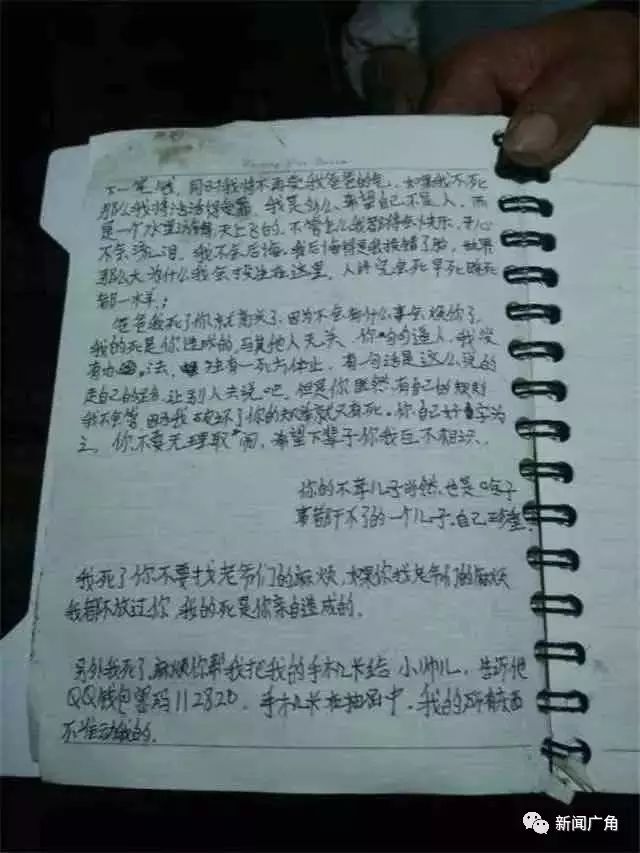 下一笔钱，同时我将不再受我爸爸的气，如果我不死
那么我将活活得受罪，我是多么希望自己不是人，而
是一个水里游得天上飞的，不管怎么我都得会快乐，开心
不会流泪，我不会后悔，我后悔得是我投错了胎，世界
那么大为什么我会投生在这里，人终究会死早死晚死
都一样；
爸爸我死了你就高兴了，因为不会有什么事会烦你了，
我的死是你造成的与其他人无关，你句句逼人，我没
有办法，独有一死为休止，有一句话是这么说的
走自己的路，让别人去说吧，但是你既然有自己的规则
我不会管，因为我破坏了你的规则就只有死。你自己好自为
之，你不要无理取闹，希望下辈子你我互不相识。
你的不孝儿子当然，也是啥子
事都干不了的一个儿子，自己
我死了你不要找老爷们的麻烦，如果你找老爷们的麻烦
我都不放过你，我的死是你亲自造成的。
另外我死了，麻烦你帮我把我的手机卡给小帅儿，告诉他
QQ钱包密码112820，手机卡在抽屉中，我的所有东西
不准动我的。
新闻广角